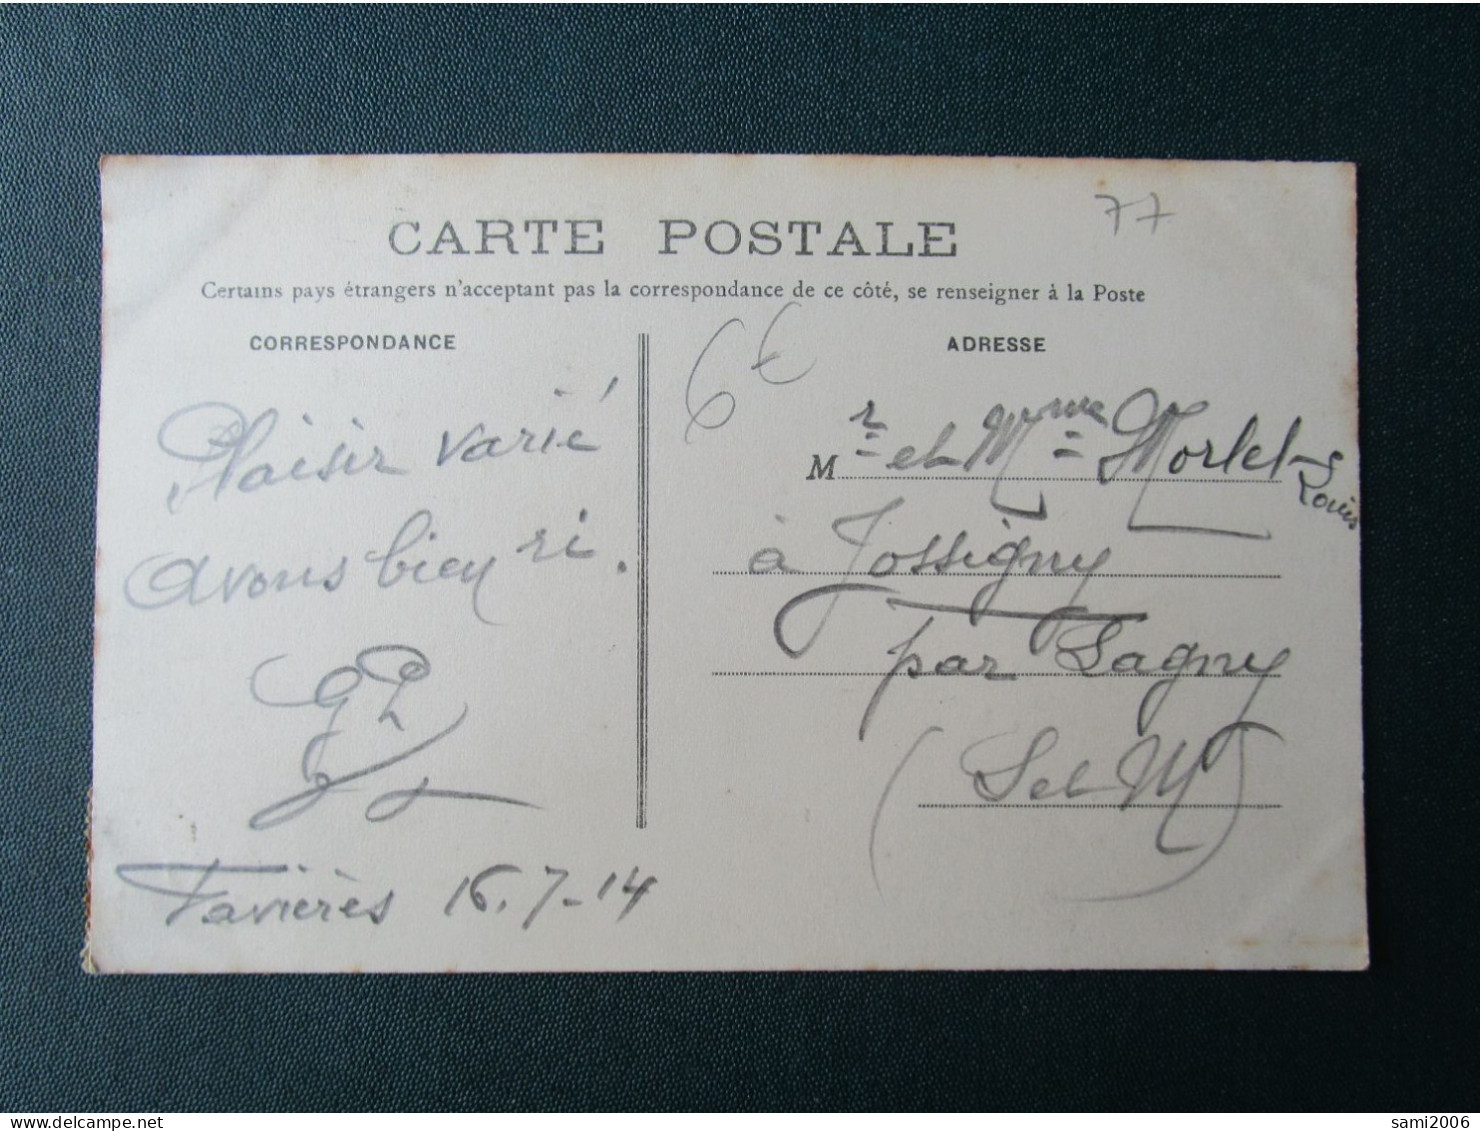 77
CARTE POSTALE
Certains pays étrangers n'acceptant pas la correspondance de ce côté, se renseigner à la Poste
CORRESPONDANCE
Plaisir varié
avons bien ri.
Favières 16.7-14
6€
ADRESSE
Mr et Mme Morlet-
Louis
à Jossigny
par Lagny
(S et M)
sami2006